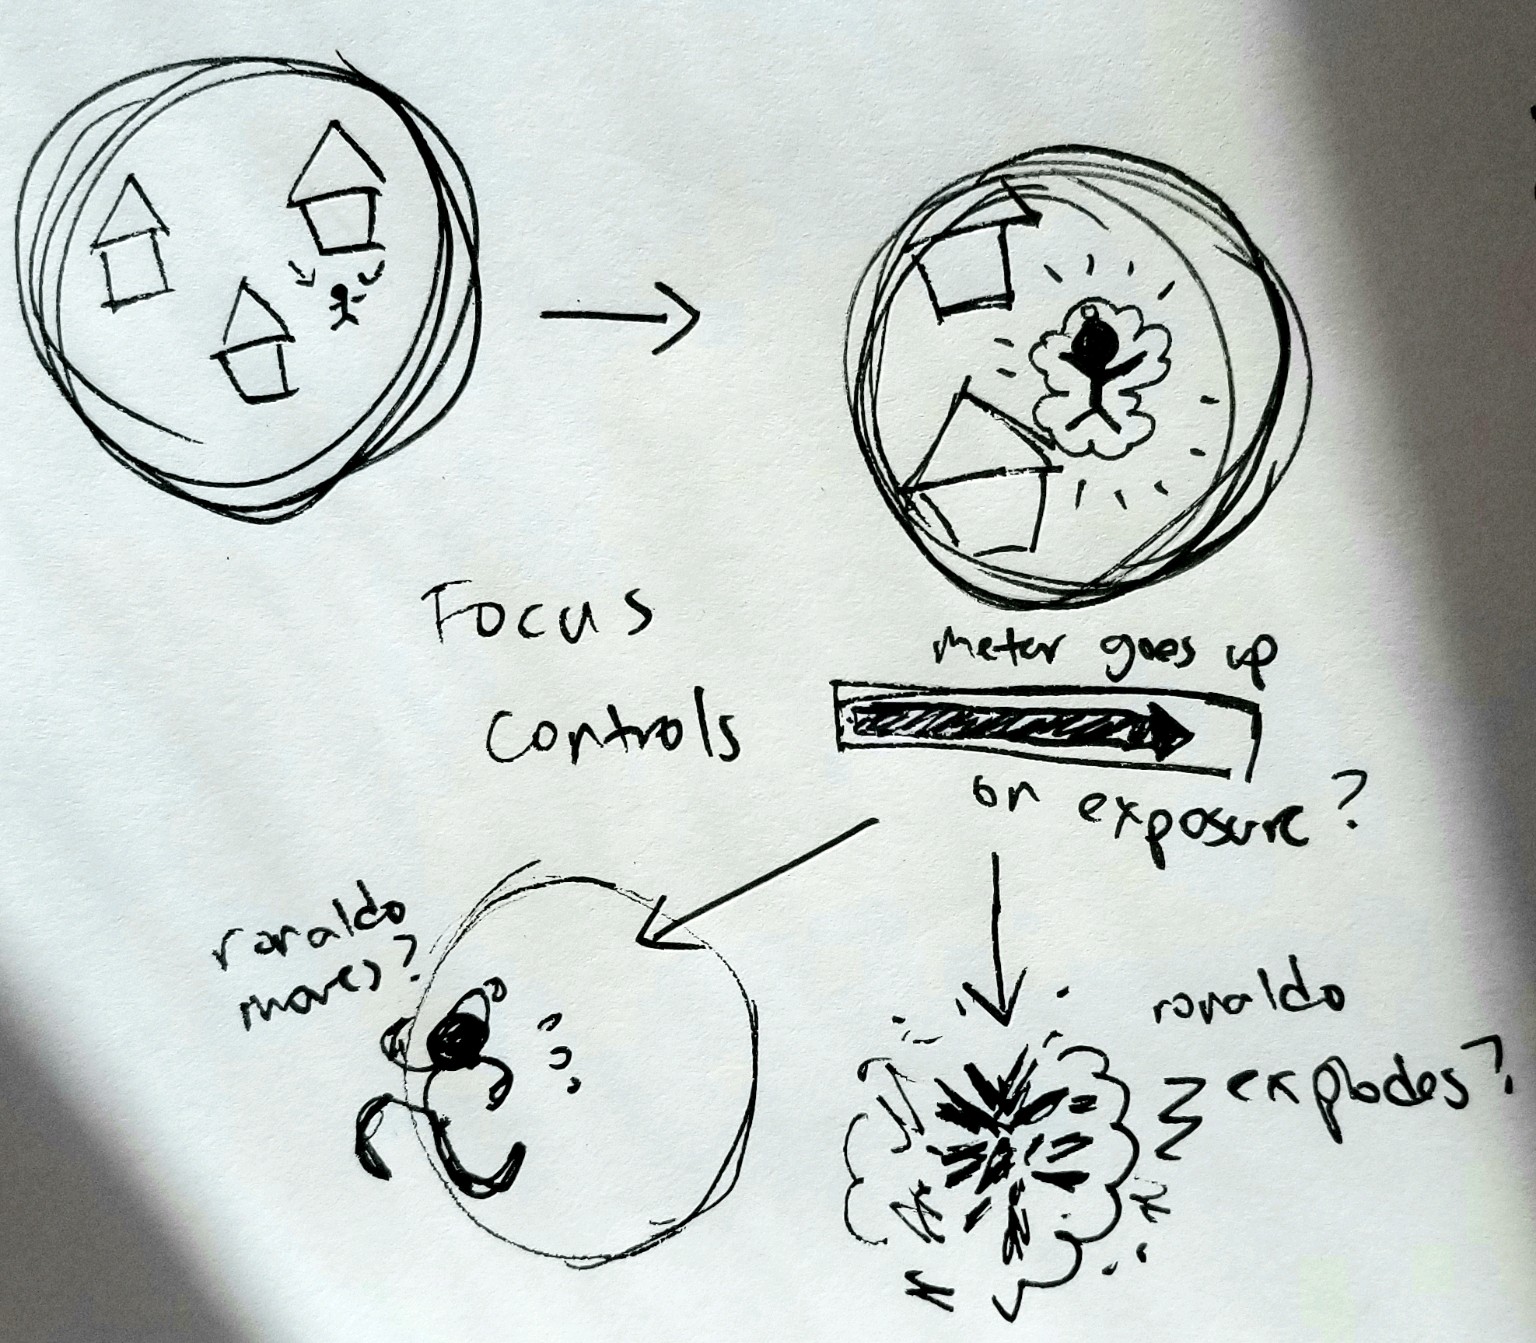 Focus
Controls
meter goes up
on exposure?
ronaldo
moves?
ronaldo
explodes?